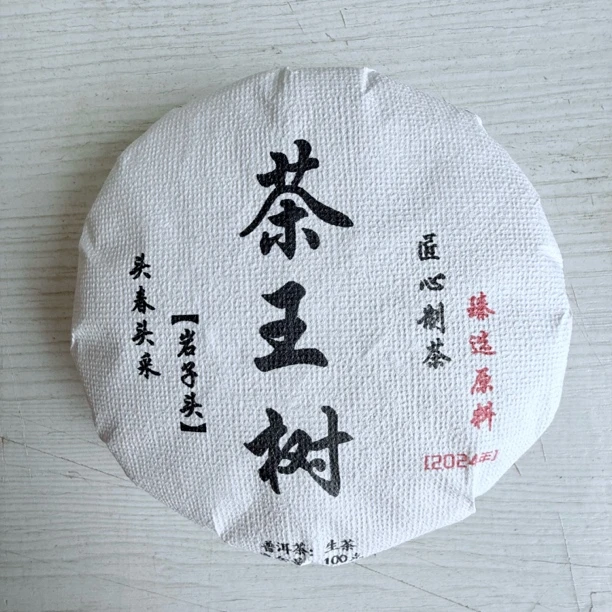 茶王树
匠心制茶
臻选原料
[2024年]
头春头采
【岩子头】
普洱茶：生茶
100